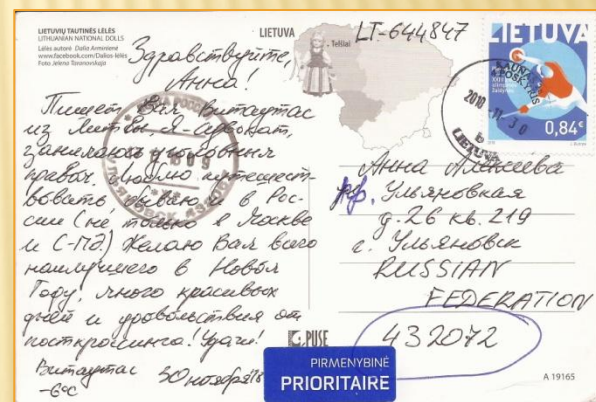 LIETUVIŲ TAUTINĖS LĖLĖS
LITHUANIAN NATIONAL DOLLS
Lėlės autorė Dalia Armínienė
www.facebook.com/Dalios-lėlės
Foto Jelena Taranovskaja
LIETUVA
Telšiai
LT-644847
Здравствуйте,
Анна!
Пишет Вам Витаутас
из Литвы. Я-адвокат,
занимаюсь уголовным
правом. Люблю путешест-
вовать, бываю и в Рос-
сии (не только в Москве
и С-Пб.) Желаю Вам всего
наилучшего в Новом
Году, много красивых
дней и удовольствия от
посткроссинга! Удачи!
Витаутас 30 ноября 18
-6°C
LIETUVA
0,84€
2018 -11- 30
LIETUVA
Анна
пр. Ульяновская
д. 26 кв. 219
г. Ульяновск
RUSSIAN
FEDERATION
432072
PIRMENYBINĖ
PRIORITAIRE
A 19165